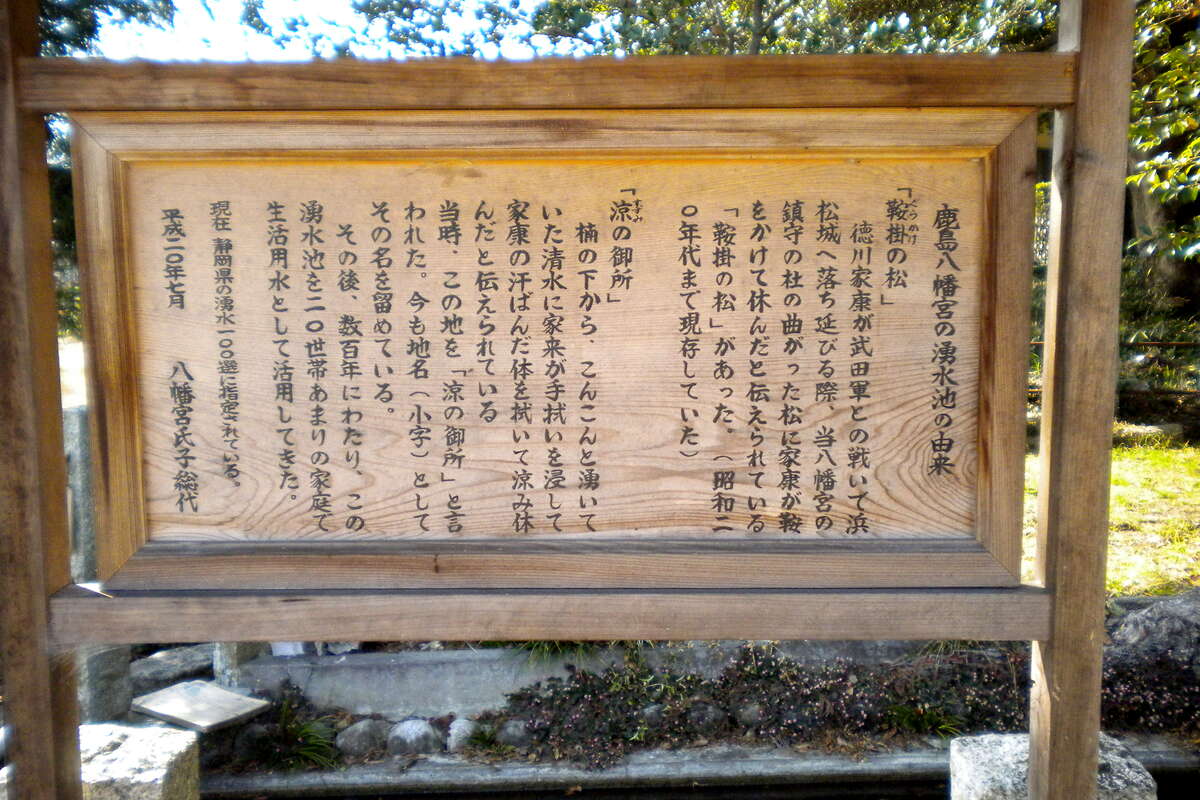 鹿島八幡宮の湧水池の由来
くらかけ
「鞍掛の松」
徳川家康が武田軍との戦いで浜
松城へ落ち延びる際、当八幡宮の
鎮守の杜の曲がった松に家康が鞍
をかけて休んだと伝えられている
「鞍掛の松」があった。(昭和二
〇年代まで現存していた)
すずみ
「涼の御所」
楠の下から、こんこんと湧いて
いた清水に家来が手拭いを浸して
家康の汗ばんだ体を拭いて涼み休
んだと伝えられている
当時、この地を「涼の御所」と言
われた。今も地名(小字)として
その名を留めている。
その後、数百年にわたり、この
湧水池を二〇世帯あまりの家庭で
生活用水として活用してきた。
現在 静岡県の湧水一〇〇選に指定されている。
平成二〇年七月 八幡宮氏子総代